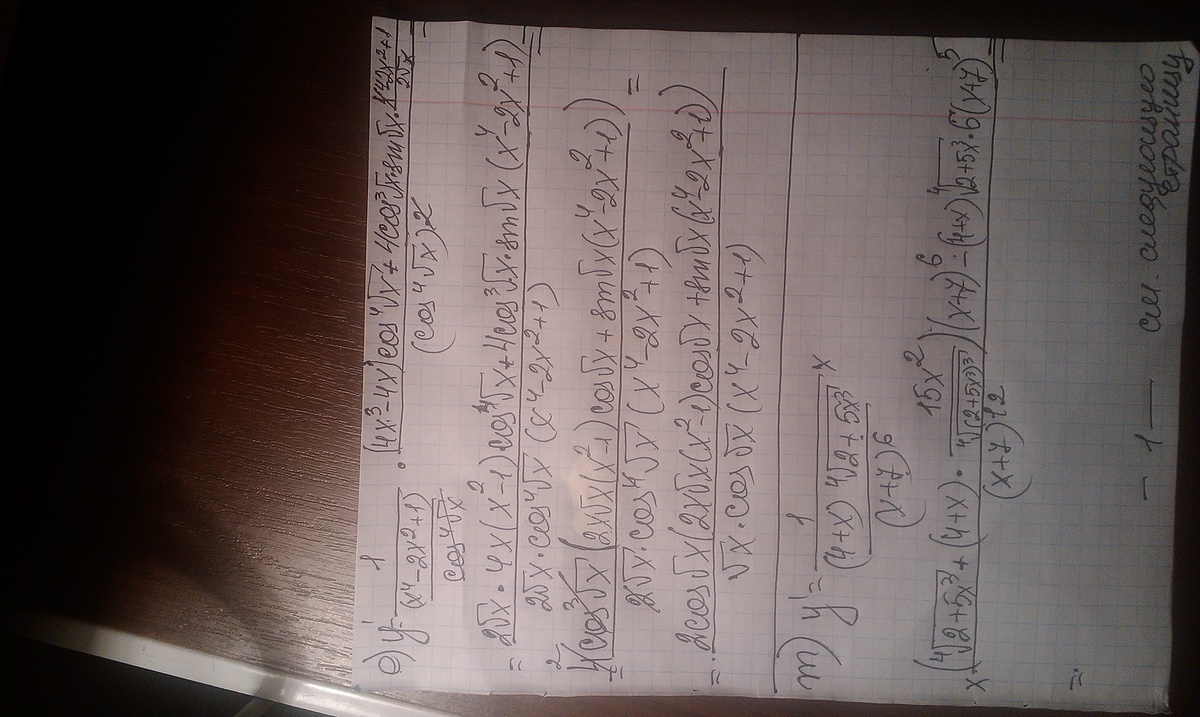 е) y' = 1/((x⁴-2x²+1)/(cos⁴√x)) · ((4x³-4x)cos⁴√x + 4cos³√x·sin√x · (x⁴-2x²+1)/(2√x))/((cos⁴√x)²) =
= (2√x · 4x(x²-1)cos⁴√x + 4cos³√x·sin√x(x⁴-2x²+1))/(2√x·cos⁴√x (x⁴-2x²+1)) =
= (4cos³√x(2x√x(x²-1)cos√x + sin√x(x⁴-2x²+1)))/(2√x·cos⁴√x (x⁴-2x²+1)) =
= (2cos√x(2x√x(x²-1)cos√x + sin√x(x⁴-2x²+1)))/(√x·cos√x (x⁴-2x²+1))
m) y' = 1/(((4+x) ⁴√(2+5x³))/((x+7)⁶)) ×
× ((⁴√(2+5x³) + (4+x) · 15x²/(⁴√((2+5x³)³)))(x+7)⁶ - (4+x) ⁴√(2+5x³) · 6(x+7)⁵)/((x+7)¹²) =
=
- 1 — см. следующую
страницу